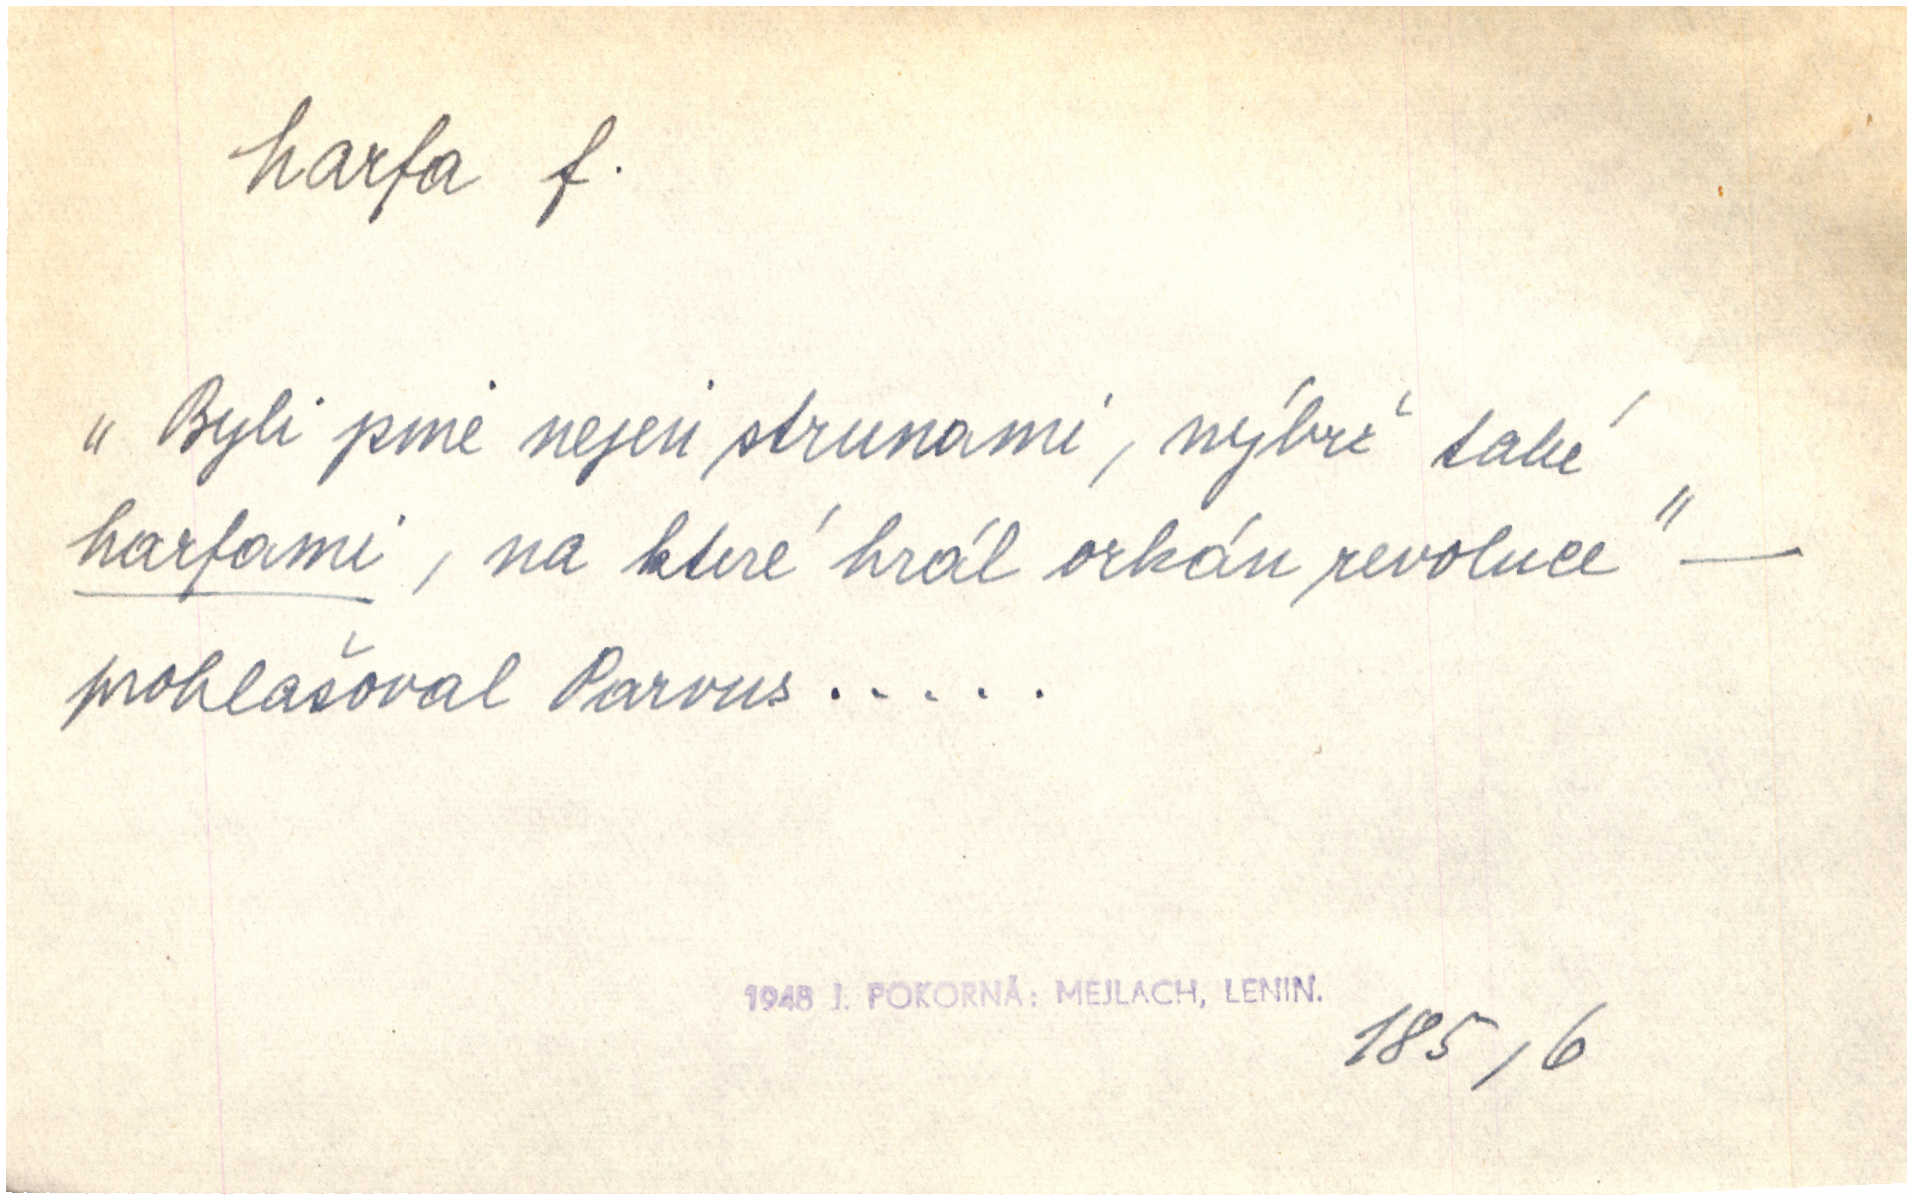 harfa f.
„Byli jsme nejen strunami, nýbrž také
harfami, na které hrál orkán revoluce" —
prohlašoval Parvus.....
1948 J. POKORNÁ: MEJLACH, LENIN.
185,6